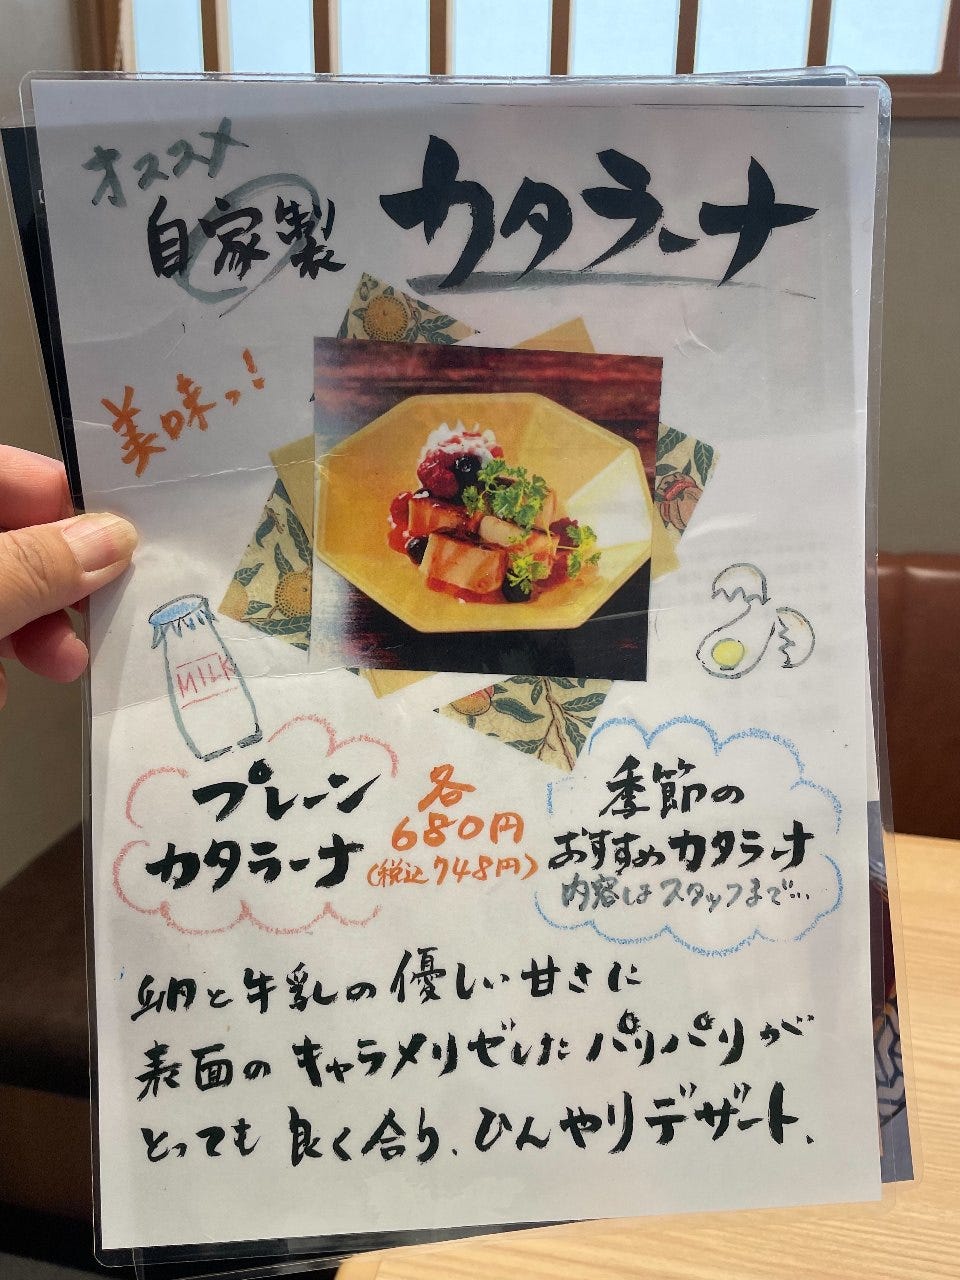 オススメ
自家製
カタラーナ
美味っ!
MILK
プレーン
カタラーナ
各
680円
(税込748円)
季節の
おすすめカタラーナ
内容はスタッフまで...
卵と牛乳の優しい甘さに
表面のキャラメリゼしたパリパリが
とっても良く合う、ひんやりデザート、